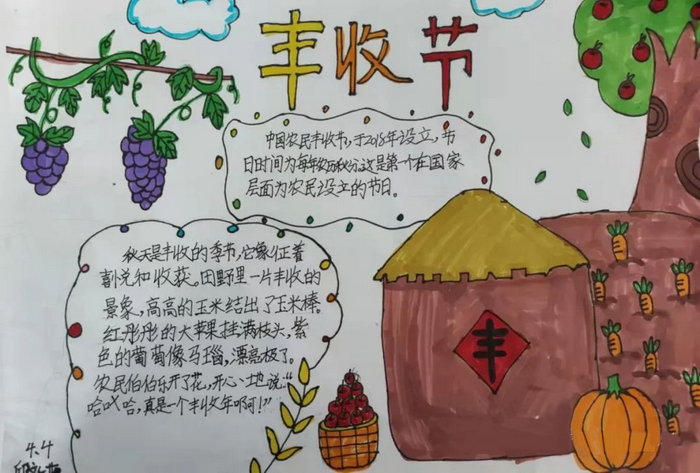 丰收节
中国农民丰收节,于2018年设立,节
日时间为每年农历秋分,这是第一个在国家
层面为农民设立的节日。
秋天是丰收的季节,它象征着
喜悦和收获。田野里一片丰收的
景象,高高的玉米结出了玉米棒。
红彤彤的大苹果挂满枝头,紫
色的葡萄像马瑙,漂亮极了。
农民伯伯乐开了花,开心地说:“
哈哈哈,真是一个丰收年啊!”
丰
4.4